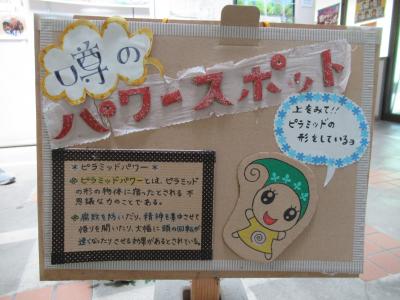 噂の
パワースポット
上をみて!!
ピラミッドの
形をしているヨ
＊ピラミッドパワー＊
ピラミッドパワーとは、ピラミッド
の形の物体に宿ったとされる不
思議な力のことである。
腐敗を防いだり、精神を集中させて
悟りを開いたり、大幅に頭の回転が
速くなったりさせる効果があるとされている。